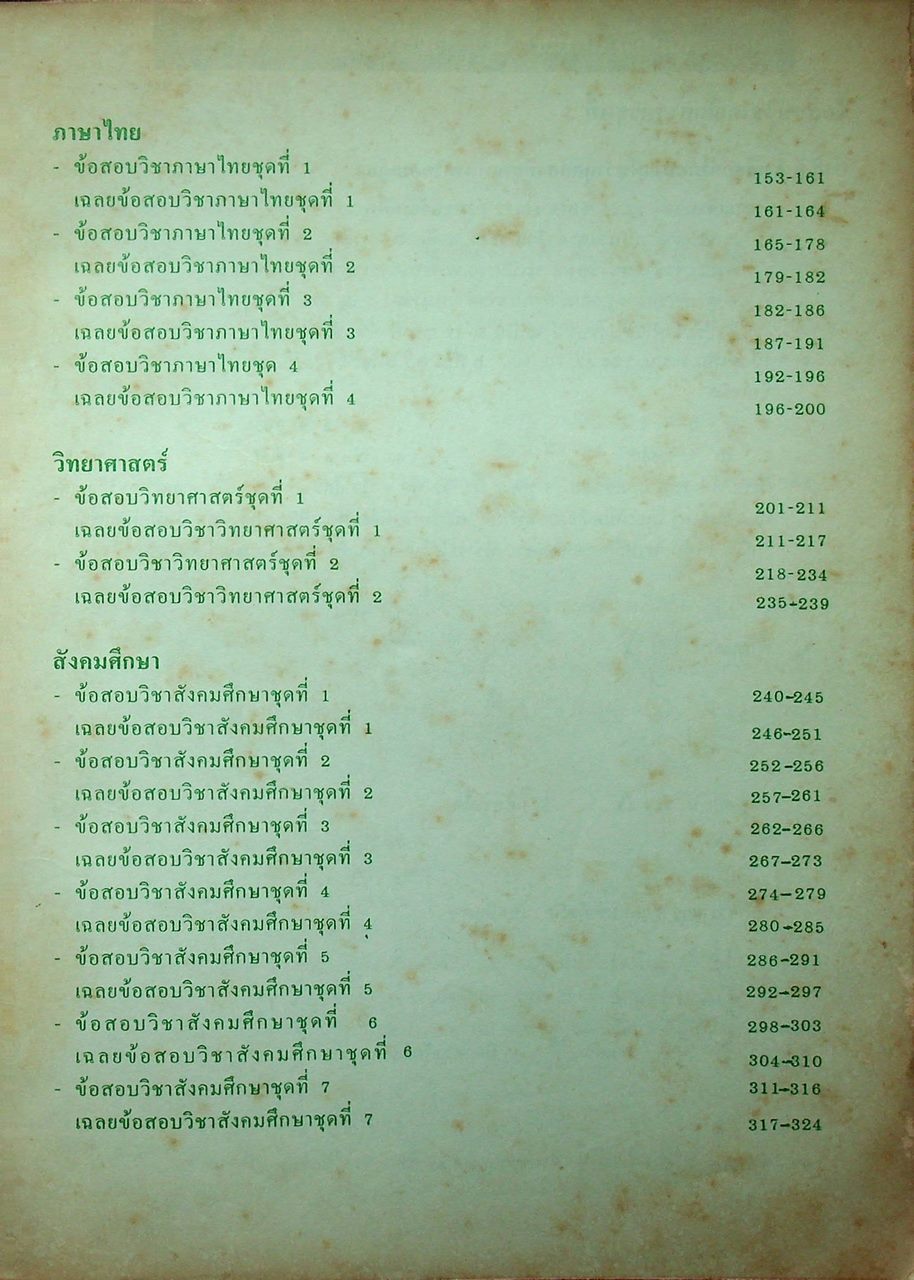 ภาษาไทย
- ข้อสอบวิชาภาษาไทยชุดที่ 1 153-161
เฉลยข้อสอบวิชาภาษาไทยชุดที่ 1 161-164
- ข้อสอบวิชาภาษาไทยชุดที่ 2 165-178
เฉลยข้อสอบวิชาภาษาไทยชุดที่ 2 179-182
- ข้อสอบวิชาภาษาไทยชุดที่ 3 182-186
เฉลยข้อสอบวิชาภาษาไทยชุดที่ 3 187-191
- ข้อสอบวิชาภาษาไทยชุด 4 192-196
เฉลยข้อสอบวิชาภาษาไทยชุดที่ 4 196-200
วิทยาศาสตร์
- ข้อสอบวิทยาศาสตร์ชุดที่ 1 201-211
เฉลยข้อสอบวิชาวิทยาศาสตร์ชุดที่ 1 211-217
- ข้อสอบวิชาวิทยาศาสตร์ชุดที่ 2 218-234
เฉลยข้อสอบวิชาวิทยาศาสตร์ชุดที่ 2 235-239
สังคมศึกษา
- ข้อสอบวิชาสังคมศึกษาชุดที่ 1 240-245
เฉลยข้อสอบวิชาสังคมศึกษาชุดที่ 1 246-251
- ข้อสอบวิชาสังคมศึกษาชุดที่ 2 252-256
เฉลยข้อสอบวิชาสังคมศึกษาชุดที่ 2 257-261
- ข้อสอบวิชาสังคมศึกษาชุดที่ 3 262-266
เฉลยข้อสอบวิชาสังคมศึกษาชุดที่ 3 267-273
- ข้อสอบวิชาสังคมศึกษาชุดที่ 4 274-279
เฉลยข้อสอบวิชาสังคมศึกษาชุดที่ 4 280-285
- ข้อสอบวิชาสังคมศึกษาชุดที่ 5 286-291
เฉลยข้อสอบวิชาสังคมศึกษาชุดที่ 5 292-297
- ข้อสอบวิชาสังคมศึกษาชุดที่ 6 298-303
เฉลยข้อสอบวิชาสังคมศึกษาชุดที่ 6 304-310
- ข้อสอบวิชาสังคมศึกษาชุดที่ 7 311-316
เฉลยข้อสอบวิชาสังคมศึกษาชุดที่ 7 317-324